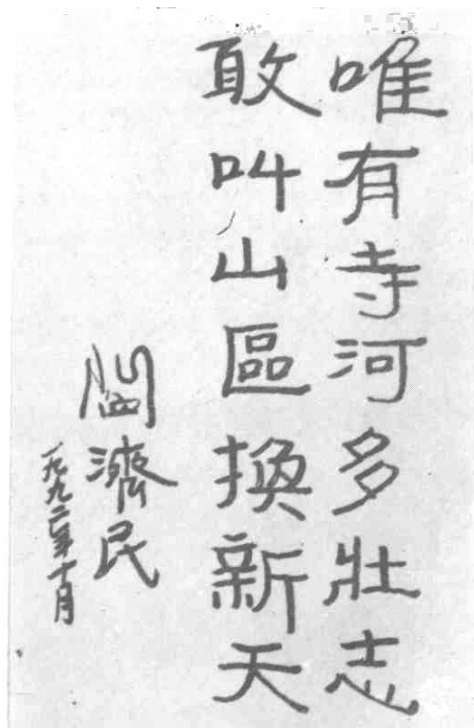 唯有寺河多壯志
敢叫山區換新天
閻濟民
一九九二年十月